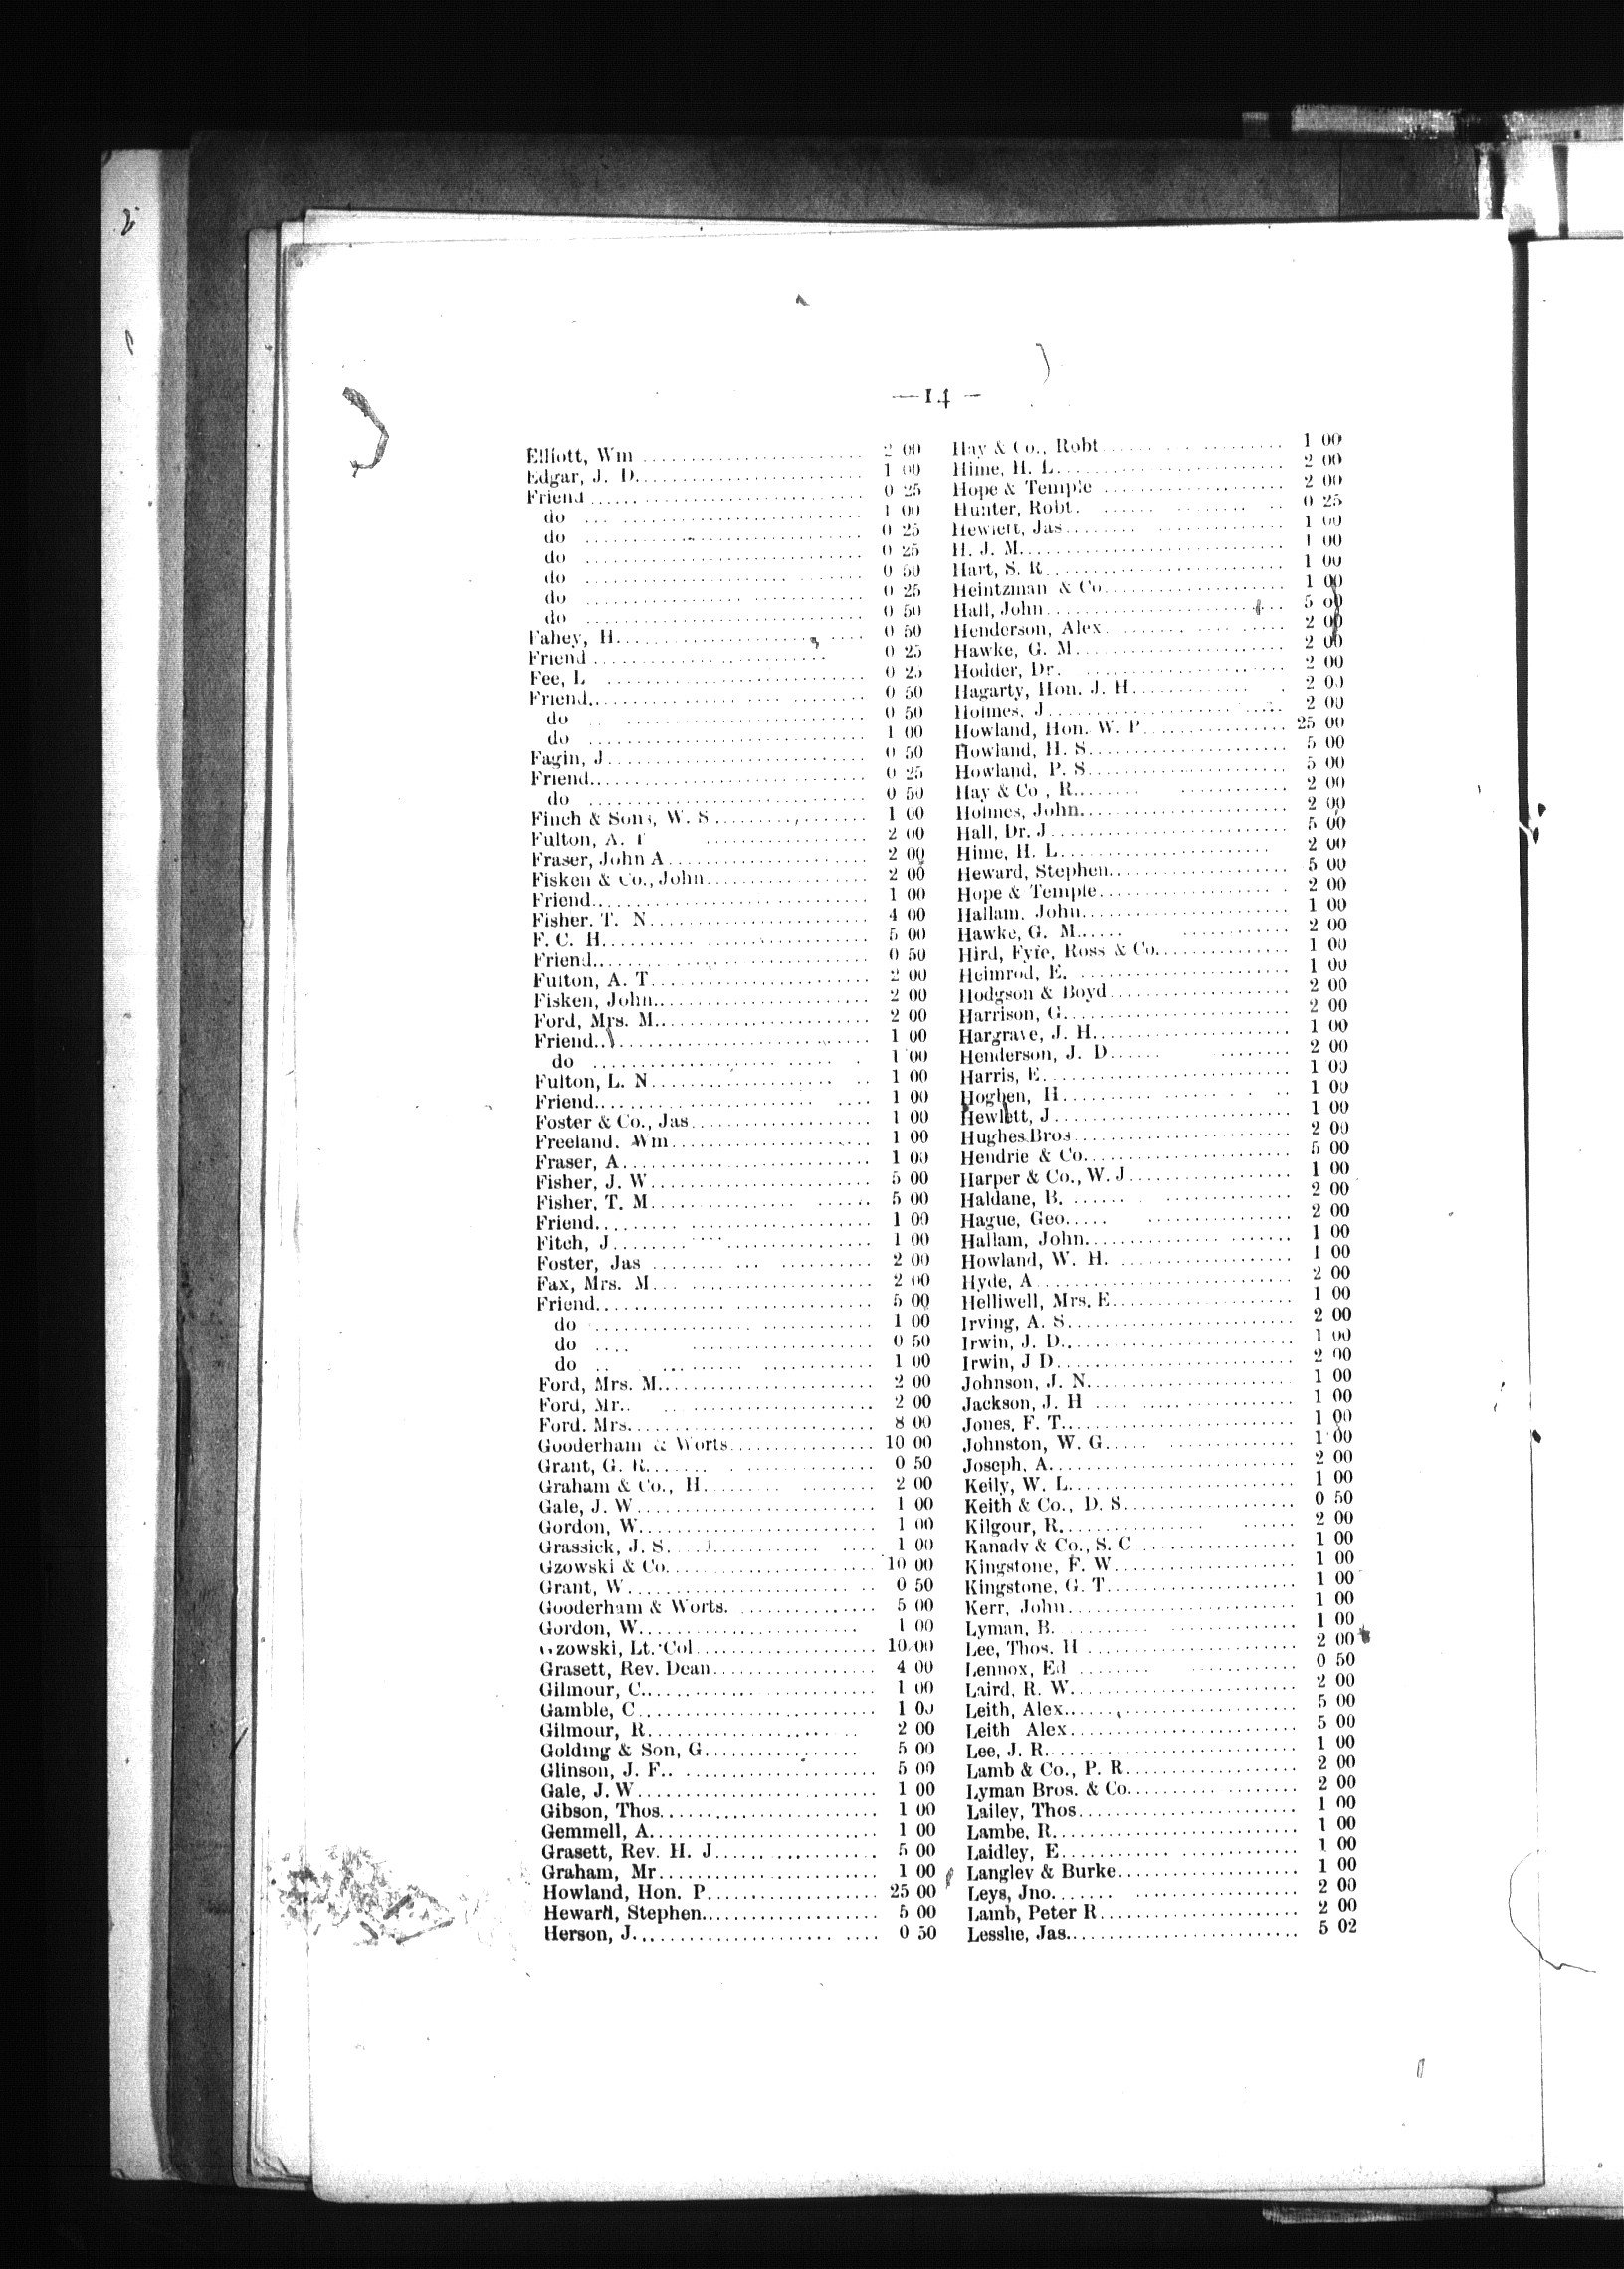 —14—
Elliott, Wm 2 00
Edgar, J. D. 1 00
Friend 0 25
do 1 00
do 0 25
do 0 25
do 0 50
do 0 25
do 0 50
Fahey, H. 0 50
Friend 0 25
Fee, L 0 25
Friend. 0 50
do 0 50
do 1 00
Fagin, J 0 50
Friend. 0 25
do 0 50
Finch & Sons, W. S. 1 00
Fulton, A. T 2 00
Fraser, John A 2 00
Fisken & Co., John 2 00
Friend. 1 00
Fisher. T. N 4 00
F. C. H. 5 00
Friend. 0 50
Fulton, A. T 2 00
Fisken, John. 2 00
Ford, Mrs. M. 2 00
Friend. 1 00
do 1 00
Fulton, L. N 1 00
Friend. 1 00
Foster & Co., Jas 1 00
Freeland. Wm 1 00
Fraser, A 1 00
Fisher, J. W 5 00
Fisher, T. M 5 00
Friend. 1 00
Fitch, J 1 00
Foster, Jas 2 00
Fax, Mrs. M. 2 00
Friend. 5 00
do 1 00
do 0 50
do 1 00
Ford, Mrs. M. 2 00
Ford, Mr. 2 00
Ford. Mrs. 8 00
Gooderham & Worts 10 00
Grant, G. R. 0 50
Graham & Co., H. 2 00
Gale, J. W 1 00
Gordon, W. 1 00
Grassick, J. S. 1 00
Gzowski & Co. 10 00
Grant, W. 0 50
Gooderham & Worts. 5 00
Gordon, W. 1 00
Gzowski, Lt. Col 10 00
Grasett, Rev. Dean 4 00
Gilmour, C. 1 00
Gamble, C 1 00
Gilmour, R. 2 00
Golding & Son, G. 5 00
Glinson, J. F. 5 00
Gale, J. W 1 00
Gibson, Thos. 1 00
Gemmell, A. 1 00
Grasett, Rev. H. J. 5 00
Graham, Mr 1 00
Howland, Hon. P. 25 00
Heward, Stephen. 5 00
Herson, J. 0 50
Hay & Co., Robt 1 00
Hime, H. L. 2 00
Hope & Temple 2 00
Hunter, Robt. 0 25
Hewlett, Jas 1 00
H. J. M. 1 00
Hart, S. R. 1 00
Heintzman & Co. 1 00
Hall, John 5 00
Henderson, Alex 2 00
Hawke, G. M. 2 00
Hodder, Dr. 2 00
Hagarty, Hon. J. H. 2 00
Holmes, J 2 00
Howland, Hon. W. P. 25 00
Howland, H. S. 5 00
Howland, P. S. 5 00
Hay & Co , R. 2 00
Holmes, John. 2 00
Hall, Dr. J 5 00
Hime, H. L. 2 00
Heward, Stephen. 5 00
Hope & Temple. 2 00
Hallam. John. 1 00
Hawke, G. M. 2 00
Hird, Fyfe, Ross & Co. 1 00
Heimrod, E. 1 00
Hodgson & Boyd 2 00
Harrison, G. 2 00
Hargrave, J. H. 1 00
Henderson, J. D. 2 00
Harris, E. 1 00
Hogben, H. 1 00
Hewlett, J 1 00
Hughes Bros 2 00
Hendrie & Co. 5 00
Harper & Co., W. J 1 00
Haldane, B. 2 00
Hague, Geo. 2 00
Hallam, John. 1 00
Howland, W. H. 1 00
Hyde, A 2 00
Helliwell, Mrs. E. 1 00
Irving, A. S. 2 00
Irwin, J. D. 1 00
Irwin, J D 2 00
Johnson, J. N. 1 00
Jackson, J. H 1 00
Jones, F. T. 1 00
Johnston, W. G. 1 00
Joseph, A. 2 00
Keily, W. L. 1 00
Keith & Co., D. S. 0 50
Kilgour, R. 2 00
Kanady & Co., S. C 1 00
Kingstone, F. W 1 00
Kingstone, G. T. 1 00
Kerr, John. 1 00
Lyman, B. 1 00
Lee, Thos. H 2 00
Lennox, Ed 0 50
Laird, R. W. 2 00
Leith, Alex. 5 00
Leith Alex 5 00
Lee, J. R. 1 00
Lamb & Co., P. R. 2 00
Lyman Bros. & Co. 2 00
Lailey, Thos 1 00
Lambe, R. 1 00
Laidley, E. 1 00
Langley & Burke 1 00
Leys, Jno. 2 00
Lamb, Peter R 2 00
Lesslie, Jas. 5 02